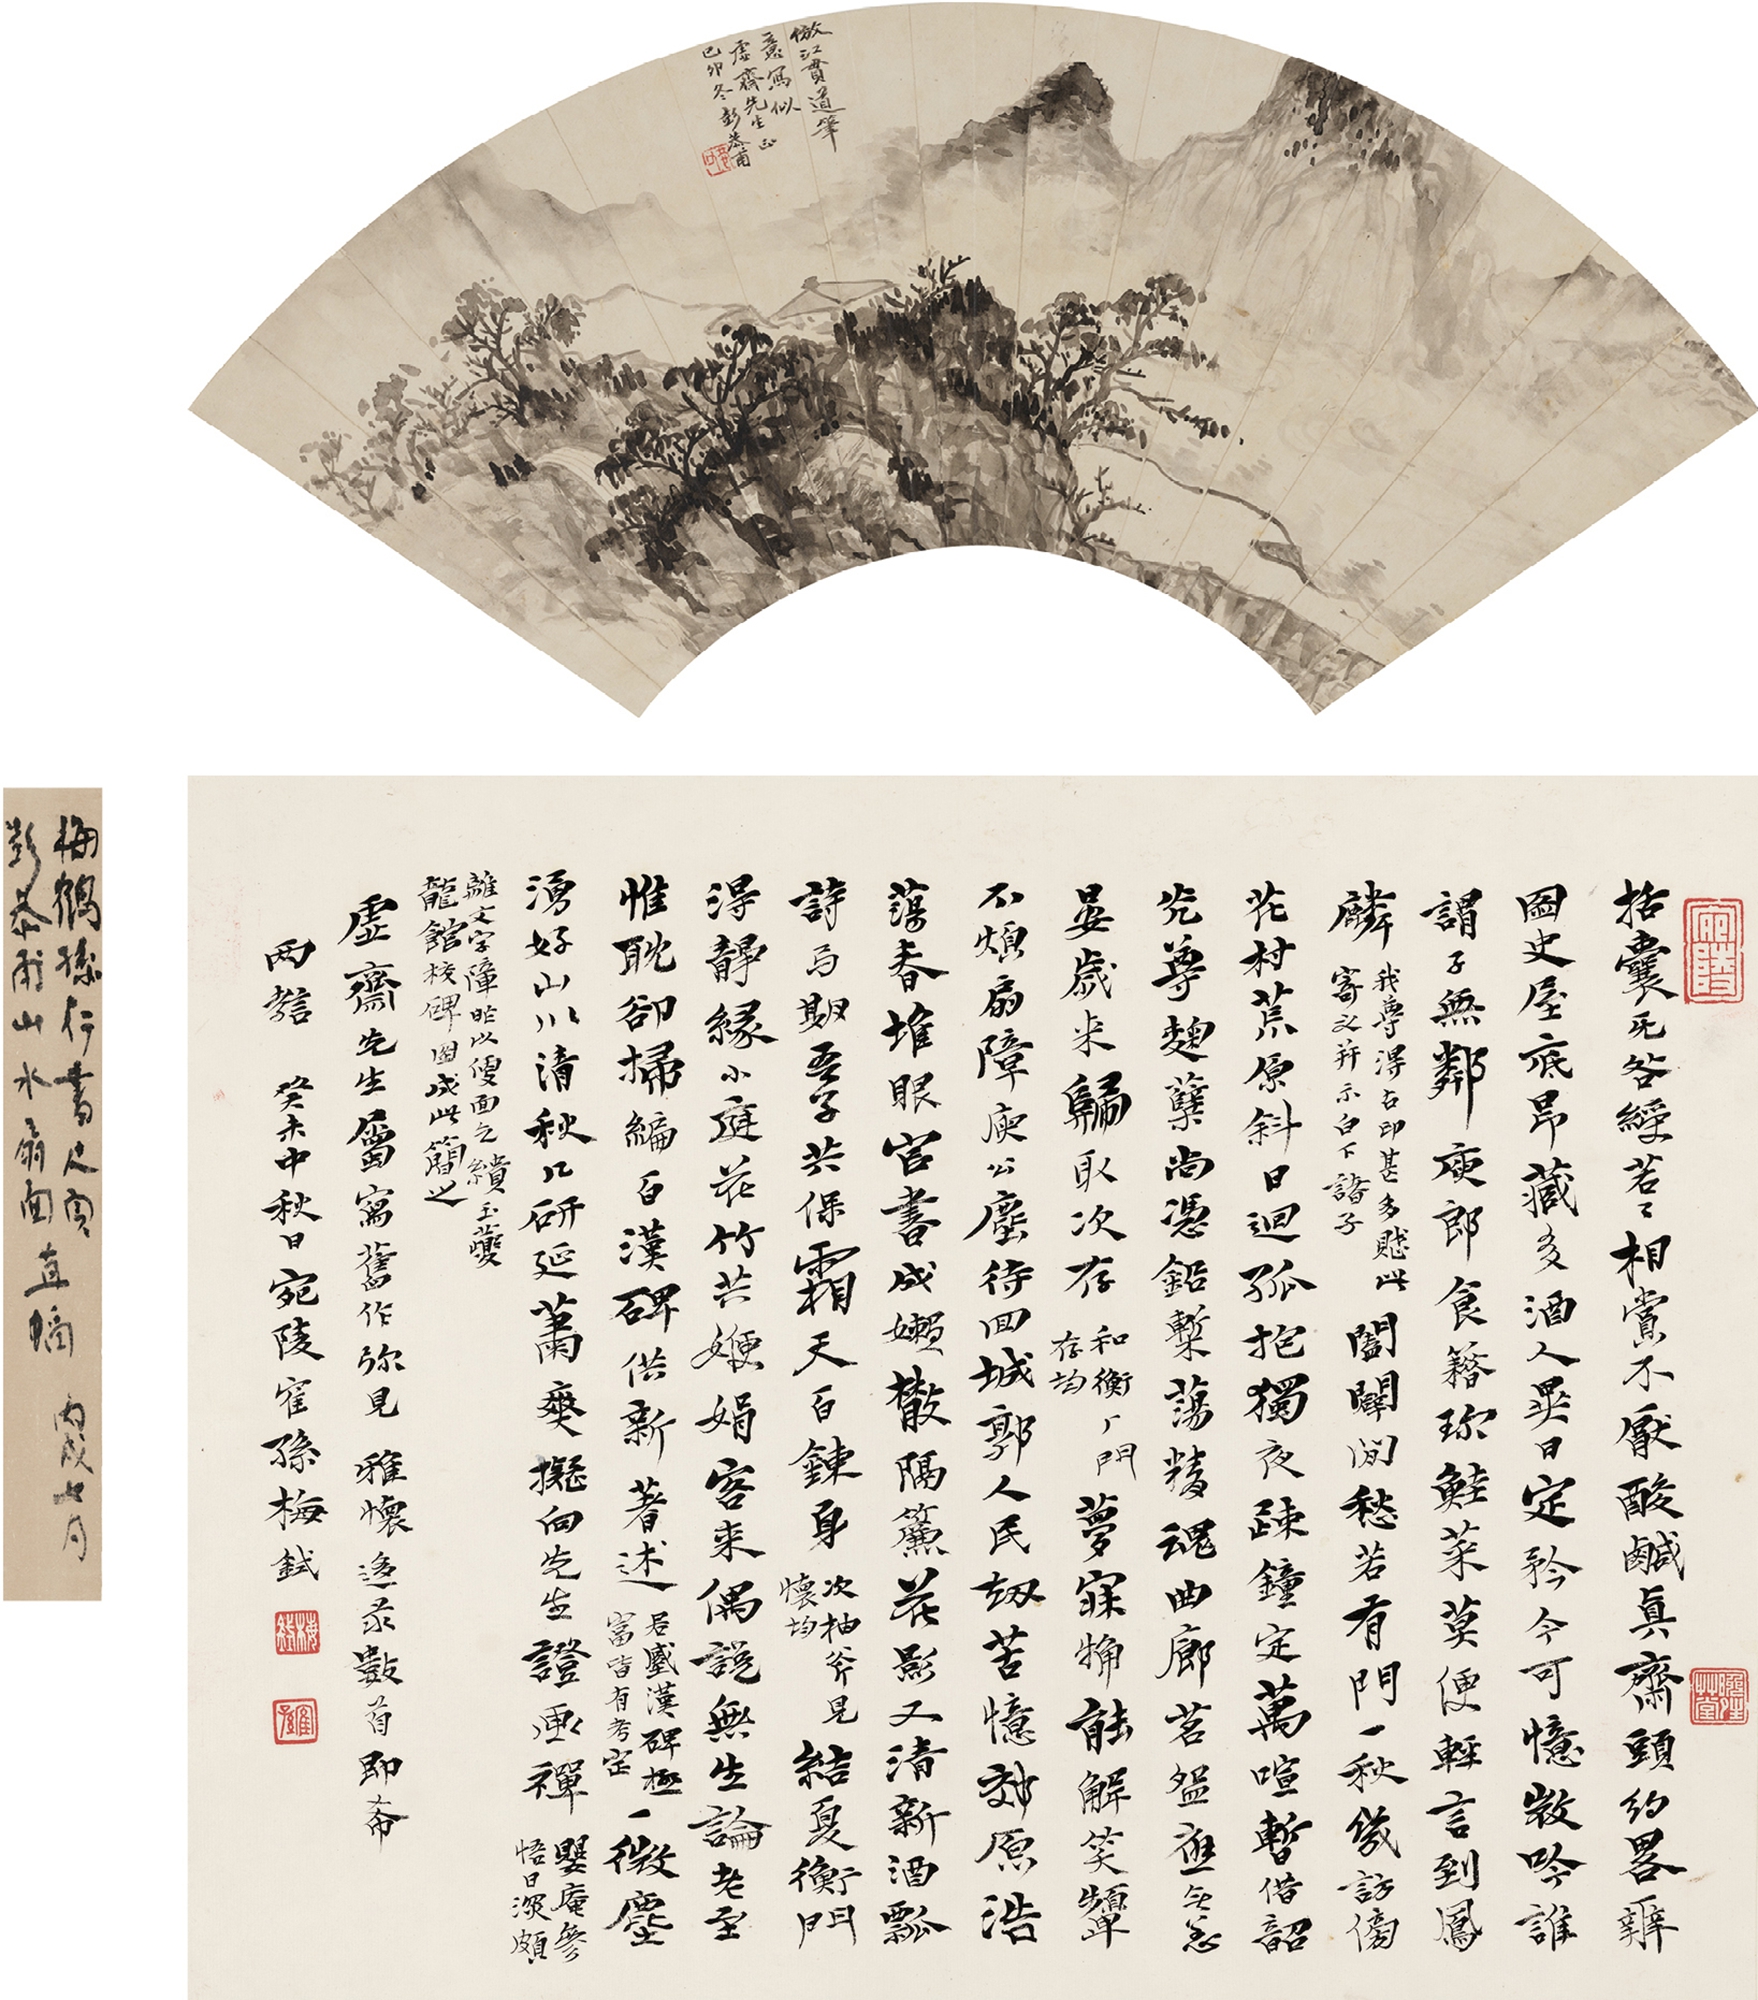 倣江貫道筆
意寫似
虛齋先生正
己卯冬彭恭甫
括囊无咎綬若若相賞不厭酸鹹真齋頭約畧辨
圖史屋底昂藏多酒人異日定矜今可憶微吟誰
謂子無鄰庾郎食簬珍鮭菜莫便輕言到鳳
麟
我尊得古印甚多賦此
寄之并示白下諸子
闔闢閒愁若有門一秋幾訪傍
花村荒原斜日迴孤抱獨夜疎鐘定萬喧暫借韶
光尊麹糵尚憑鉛槧蕩精魂曲廊茗盌應無恙
晏歲來騙取次存
和衡厂門
存均
夢寐觕能解笑顰
不煩扇障庾公塵待回城郭人民劫苦憶郊原浩
蕩春堆眼官書成嬾散隔簾花影又清新酒瓢
詩与期吾子共保霜天百鍊身
次柚岑見
懷均
結夏衡門
得靜緣小庭花竹共㛹娟客來偶說無生論老至
惟耽卻掃編百漢碑供新著述
君盛漢碑極
富皆有考定
一微塵
湧好山川清秋几研延蕭爽擬向先生證畫禪
嬰庵參
悟日深頗
離文字障昨以便面乞繢玉夔
龍館校碑圖成此簡之
虛齋先生屬寫舊作弥見雅懷迻录數首即希
兩諟 癸未中秋日宛陵隺孫梅鉽
梅鶴孫行書尺寅
彭恭甫山水扇面直幅 丙戌七月